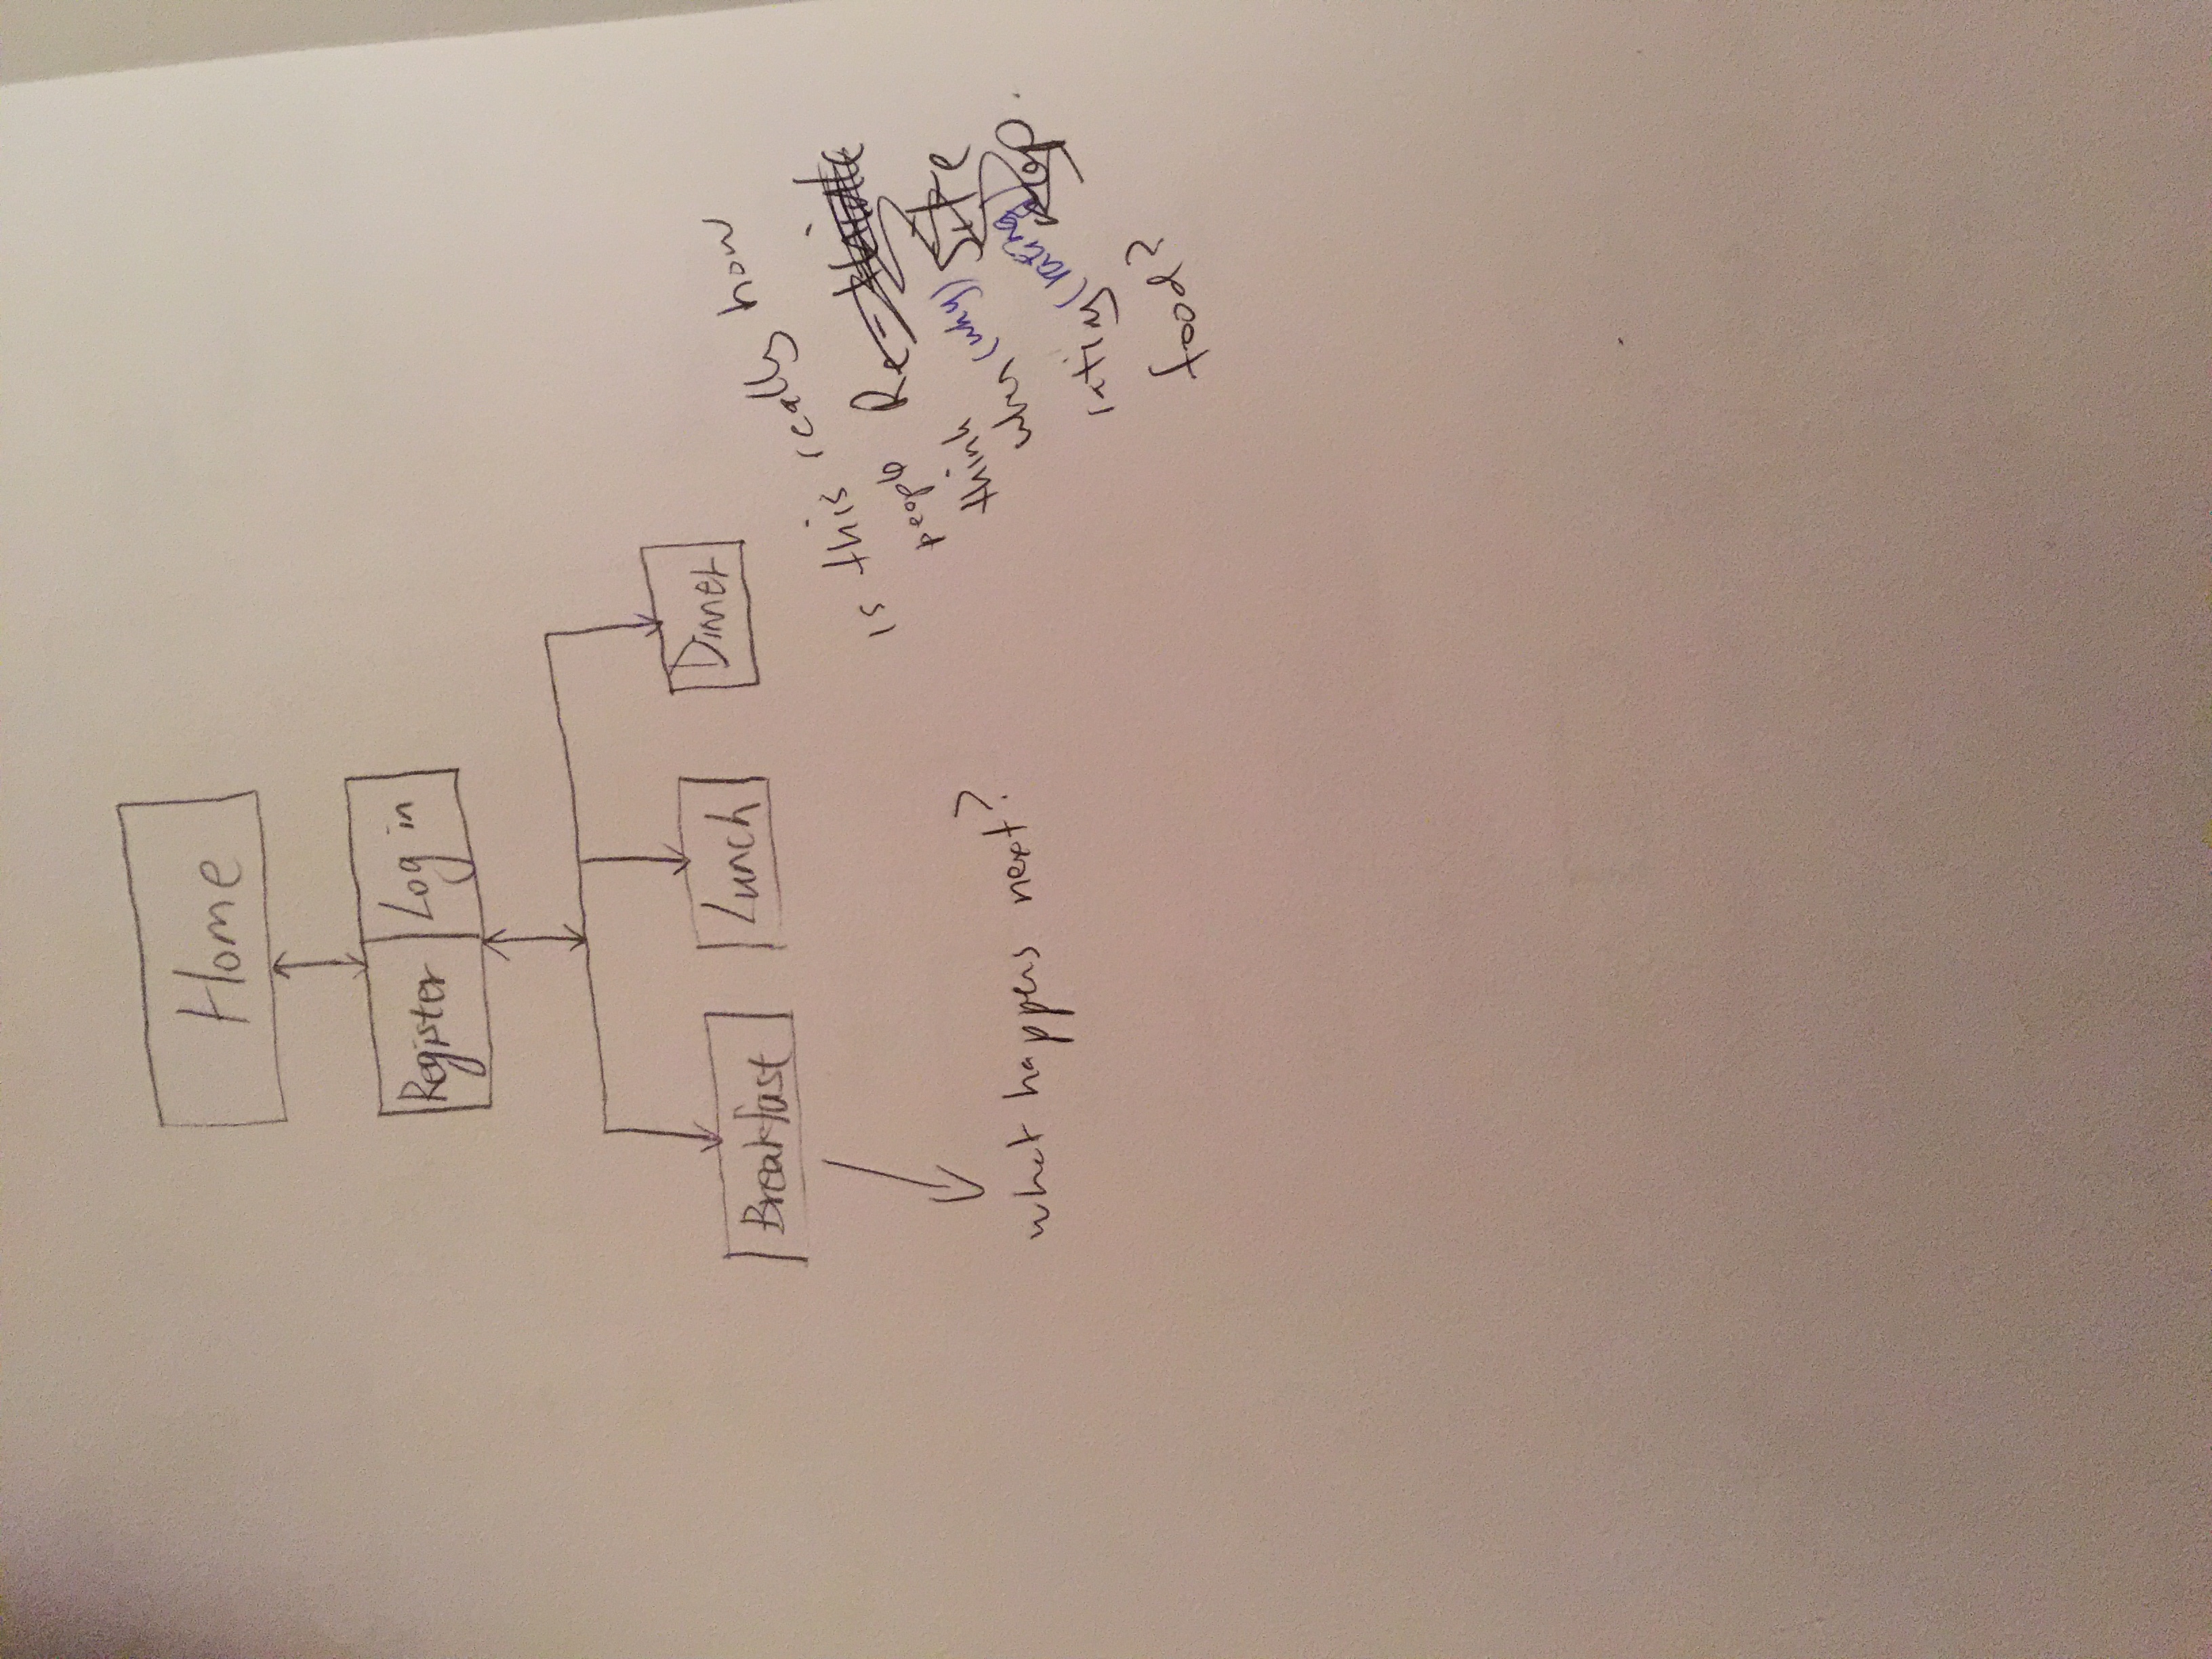 Home
Register Log in
Breakfast Lunch Dinner
what happens next?
is this really how
people
think
when (why)
rating (rating)
food?
Re-think
Site
Map.